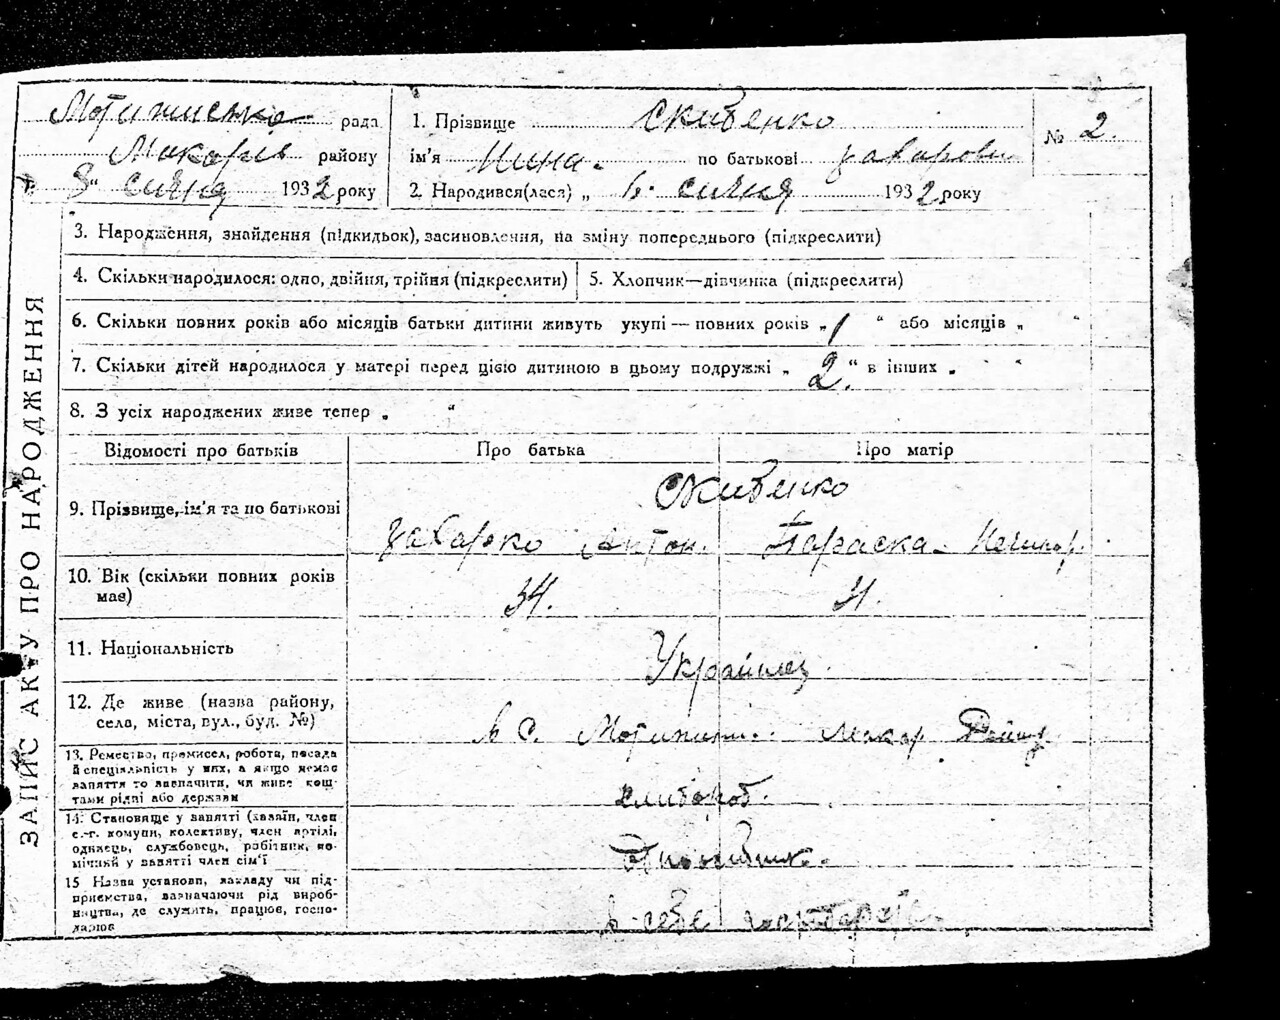 Мотижинська рада
Макарів району
8" січня 1932 року
1. Прізвище Скибенко
ім'я Нина по батькові Захаровн
2. Народився(лася) „ 6. січня 1932 року
№ 2.
ЗАПИС АКТУ ПРО НАРОДЖЕННЯ
3. Народження, знайдення (підкидьок), засиновлення, на зміну попереднього (підкреслити)
4. Скільки народилося: одно, двійня, трійня (підкреслити)
5. Хлопчик—дівчинка (підкреслити)
6. Скільки повних років або місяців батьки дитини живуть укупі — повних років „ 1 “ або місяців „ “
7. Скільки дітей народилося у матері перед цією дитиною в цьому подружжі „ 2. “ в інших „ “
8. З усіх народжених живе тепер „ “
Відомості про батьків
Про батька
Про матір
9. Прізвище, ім'я та по батькові
Скибенко
Захарко Антон.
Параска Нечипор.
10. Вік (скільки повних років
має)
34.
31.
11. Національність
Українец
12. Де живе (назва району,
села, міста, вул., буд. №)
в С. Мотижин. Макар
13. Ремество, промисел, робота, посада
й спеціальність у них, а якщо немає
заняття то зазначити, чи живе кош-
тами рідні або держави
хлибороб.
14. Становище у занятті (хазяїн, член
с.-г. комуни, колективу, член артілі,
одинець, службовець, робітник, по-
мічний у занятті член сім'ї
15 Назва установи, закладу чи під-
приємства, зазначаючи рід вироб-
ництва, де служить, працює, госпо-
дарює
в себе